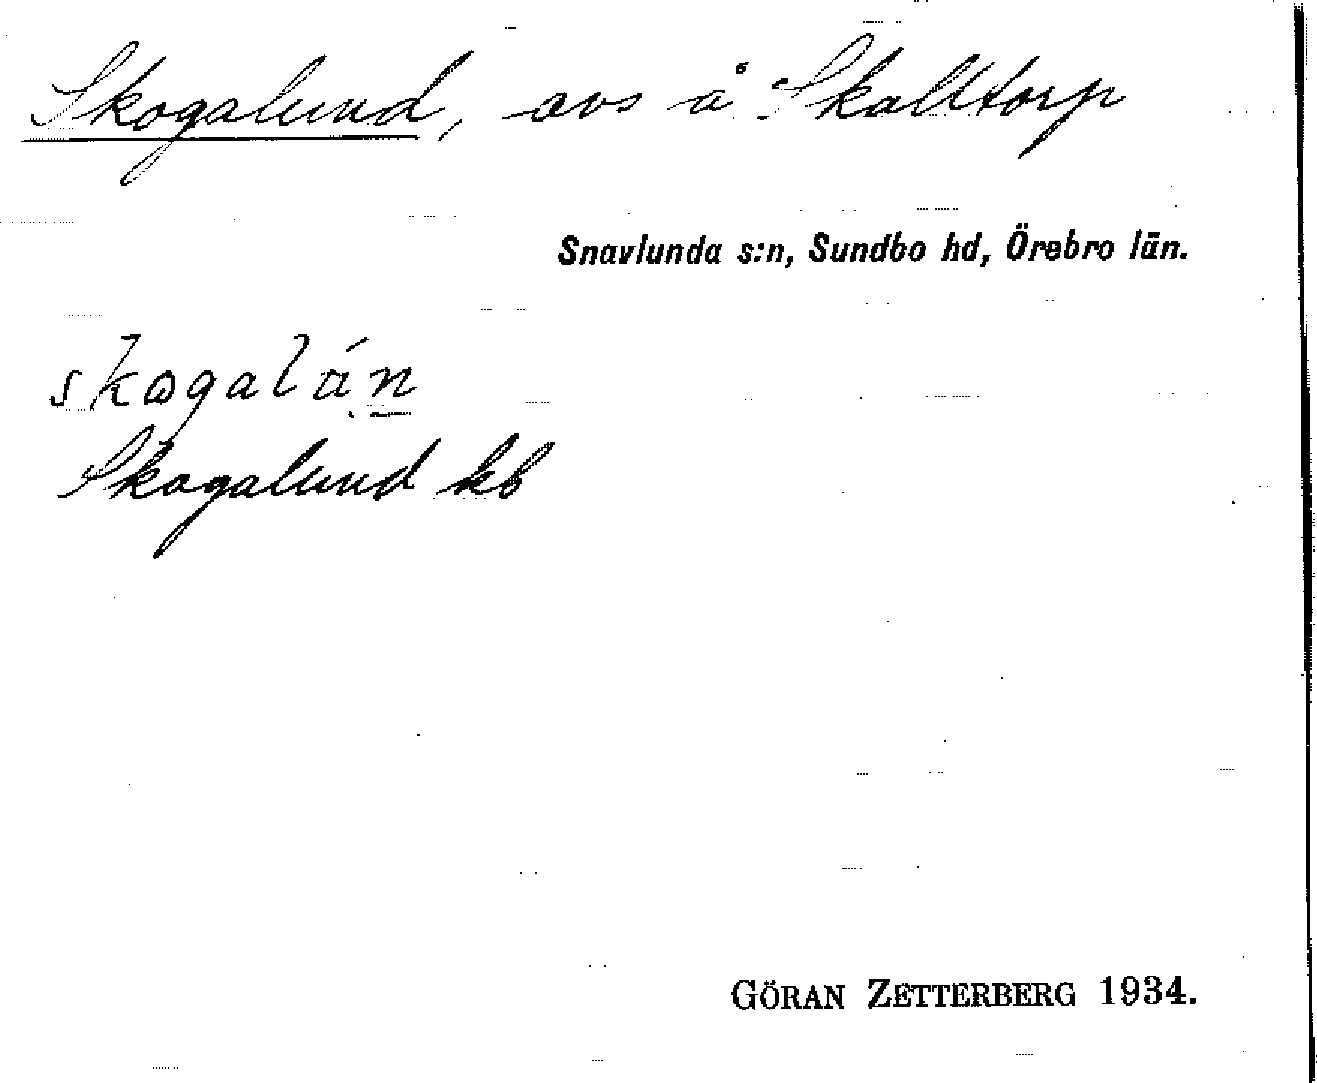 Skogalund, avs å Skalltorp
Snavlunda s:n, Sundbo hd, Örebro län.
skogalán
Skogalund kb
GÖRAN ZETTERBERG 1934.